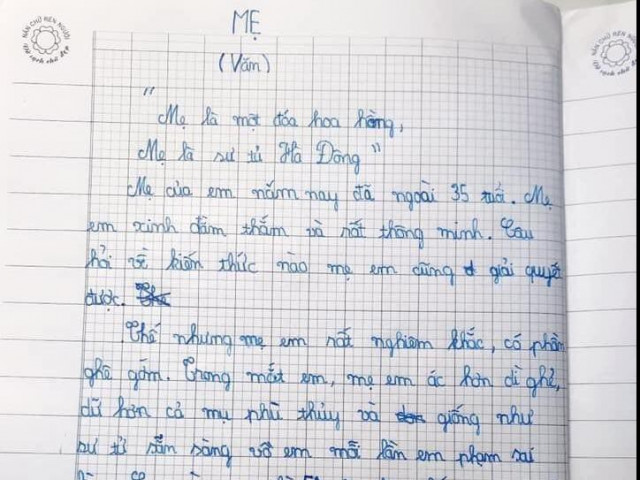 MẸ
(Văn)
"
Mẹ là một đóa hoa hồng,
Mẹ là sư tử Hà Đông"
Mẹ của em năm nay đã ngoài 35 tuổi. Mẹ
em xinh đằm thắm và rất thông minh. Câu
hỏi về kiến thức nào mẹ em cũng giải quyết
được.
Thế nhưng mẹ em rất nghiêm khắc, có phần
ghê gớm. Trong mắt em, mẹ em ác hơn dì ghẻ,
dữ hơn cả mụ phù thủy và giống như
sư tử sẵn sàng vồ em mỗi lần em phạm sai
NÉT CHỮ NẾT NGƯỜI
Vở sạch chữ đẹp